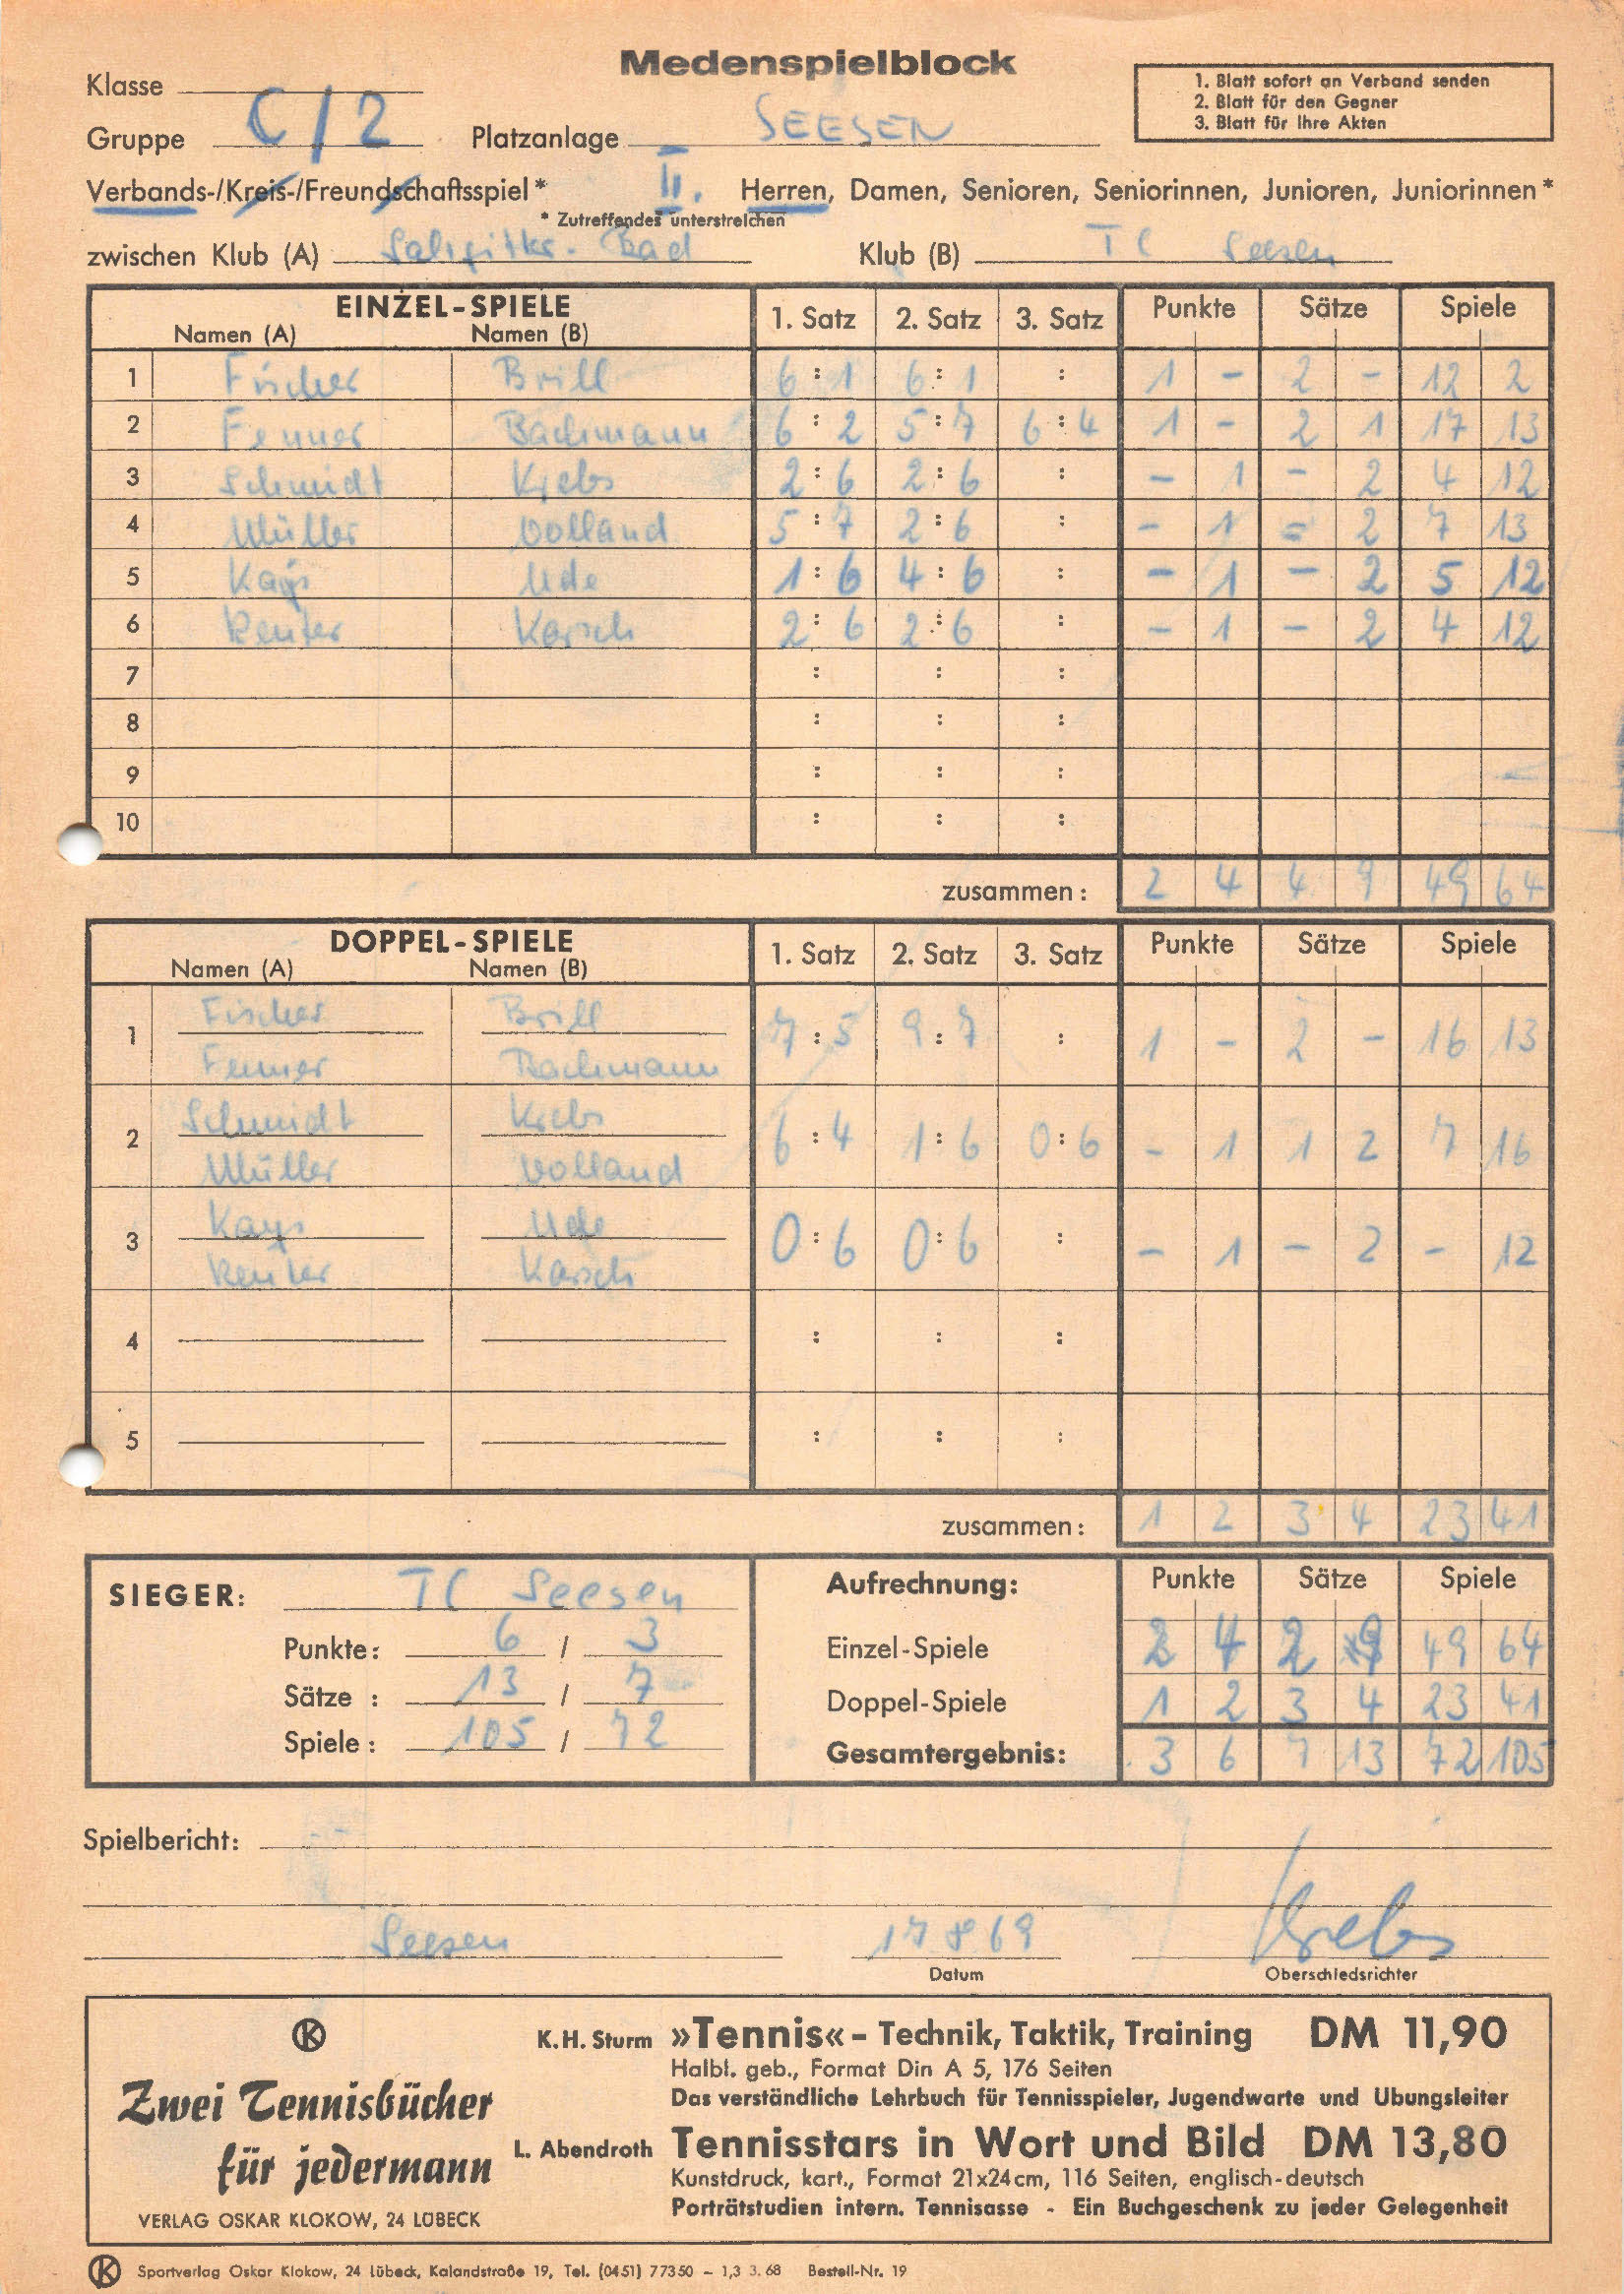 Medenspielblock
Klasse
1. Blatt sofort an Verband senden
2. Blatt für den Gegner
3. Blatt für Ihre Akten
Gruppe C/2 Platzanlage SEESEN
Verbands-/Kreis-/Freundschaftsspiel* II. Herren, Damen, Senioren, Seniorinnen, Junioren, Juniorinnen*
* Zutreffendes unterstreichen
zwischen Klub (A) Salzgitter-Bad Klub (B) TC Seesen
EINZEL-SPIELE 1. Satz 2. Satz 3. Satz Punkte Sätze Spiele
Namen (A) Namen (B)
1 Fischer Brill 6:1 6:1 : 1 - 2 - 12 2
2 Fenner Bachmann 6:2 5:7 6:4 1 - 2 1 17 13
3 Schmidt Krebs 2:6 2:6 : - 1 - 2 4 12
4 Müller Volland 5:7 2:6 : - 1 = 2 7 13
5 Kays Ude 1:6 4:6 : - 1 - 2 5 12
6 Reuter Karsch 2:6 2:6 : - 1 - 2 4 12
7 : : :
8 : : :
9 : : :
10 : : :
zusammen: 2 4 4 9 49 64
DOPPEL-SPIELE 1. Satz 2. Satz 3. Satz Punkte Sätze Spiele
Namen (A) Namen (B)
Fischer Brill
1 7:5 9:7 : 1 - 2 - 16 13
Fenner Bachmann
Schmidt Krebs
2 6:4 1:6 0:6 - 1 1 2 7 16
Müller Volland
Kays Ude
3 0:6 0:6 : - 1 - 2 - 12
Reuter Karsch
4 : : :
5 : : :
zusammen: 1 2 3 4 23 41
SIEGER: TC Seesen Aufrechnung: Punkte Sätze Spiele
Punkte: 6 / 3 Einzel-Spiele 2 4 2 9 49 64
Sätze : 13 / 7 Doppel-Spiele 1 2 3 4 23 41
Spiele : 105 / 72 Gesamtergebnis: 3 6 7 13 72 105
Spielbericht:
Seesen 17 8 69 Krebs
Datum Oberschiedsrichter
K
Zwei Tennisbücher
für jedermann
VERLAG OSKAR KLOKOW, 24 LÜBECK
K. H. Sturm »Tennis« - Technik, Taktik, Training DM 11,90
Halbl. geb., Format Din A 5, 176 Seiten
Das verständliche Lehrbuch für Tennisspieler, Jugendwarte und Übungsleiter
L. Abendroth Tennisstars in Wort und Bild DM 13,80
Kunstdruck, kart., Format 21x24cm, 116 Seiten, englisch-deutsch
Porträtstudien intern. Tennisasse - Ein Buchgeschenk zu jeder Gelegenheit
K Sportverlag Oskar Klokow, 24 Lübeck, Kalandstraße 19, Tel. (0451) 77350 - 1,3 3. 68 Bestell-Nr. 19